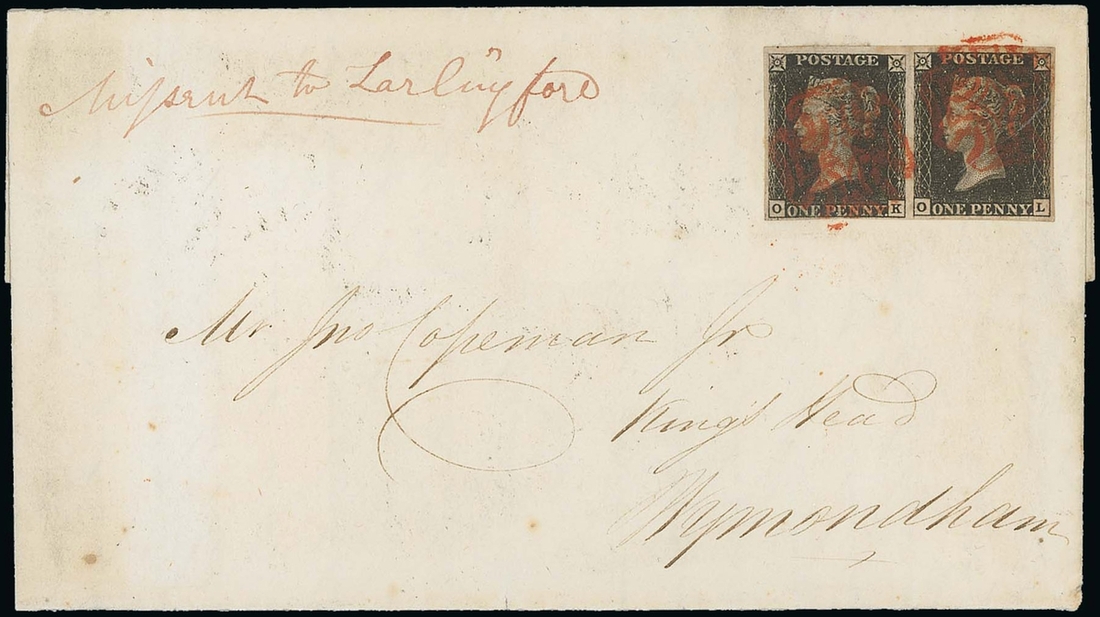 Missent to Larlingford
POSTAGE POSTAGE
O ONE PENNY K O ONE PENNY L
Mr Jno Copeman Jr
King's Head
Wymondham